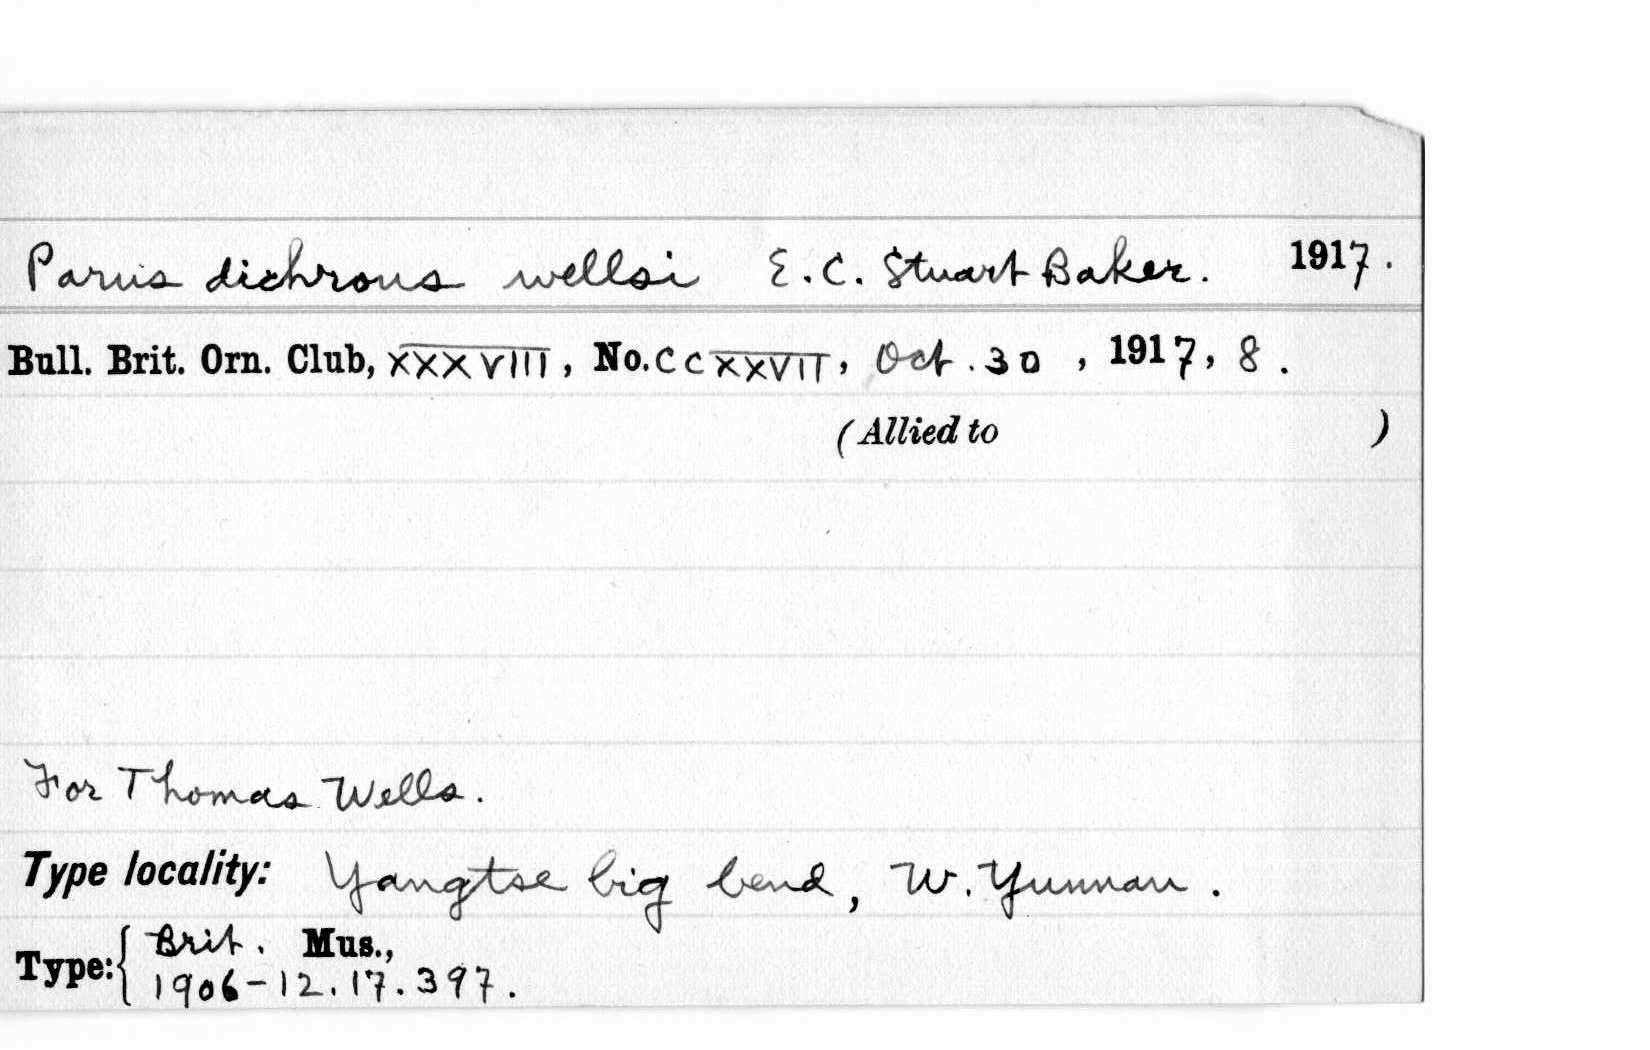 Parus dichrous wellsi E. C. Stuart Baker. 1917.
Bull. Brit. Orn. Club, XXXVIII, No. CCXXVII, Oct. 30, 1917, 8.
(Allied to )
For Thomas Wells.
Type locality: Yangtse big bend, W. Yunnan.
Type: { Brit. Mus.,
1906-12.17.397.